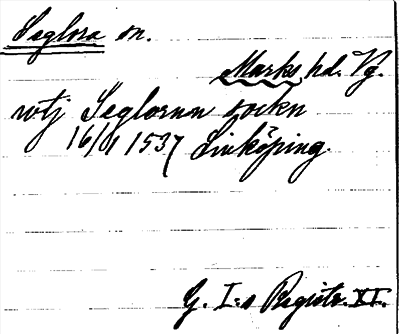 Seglora sn.
Marks hd. Vg.
wtj Seglorun sockn
16/1 1537 Linköping.
G. I:s Registr. XI.